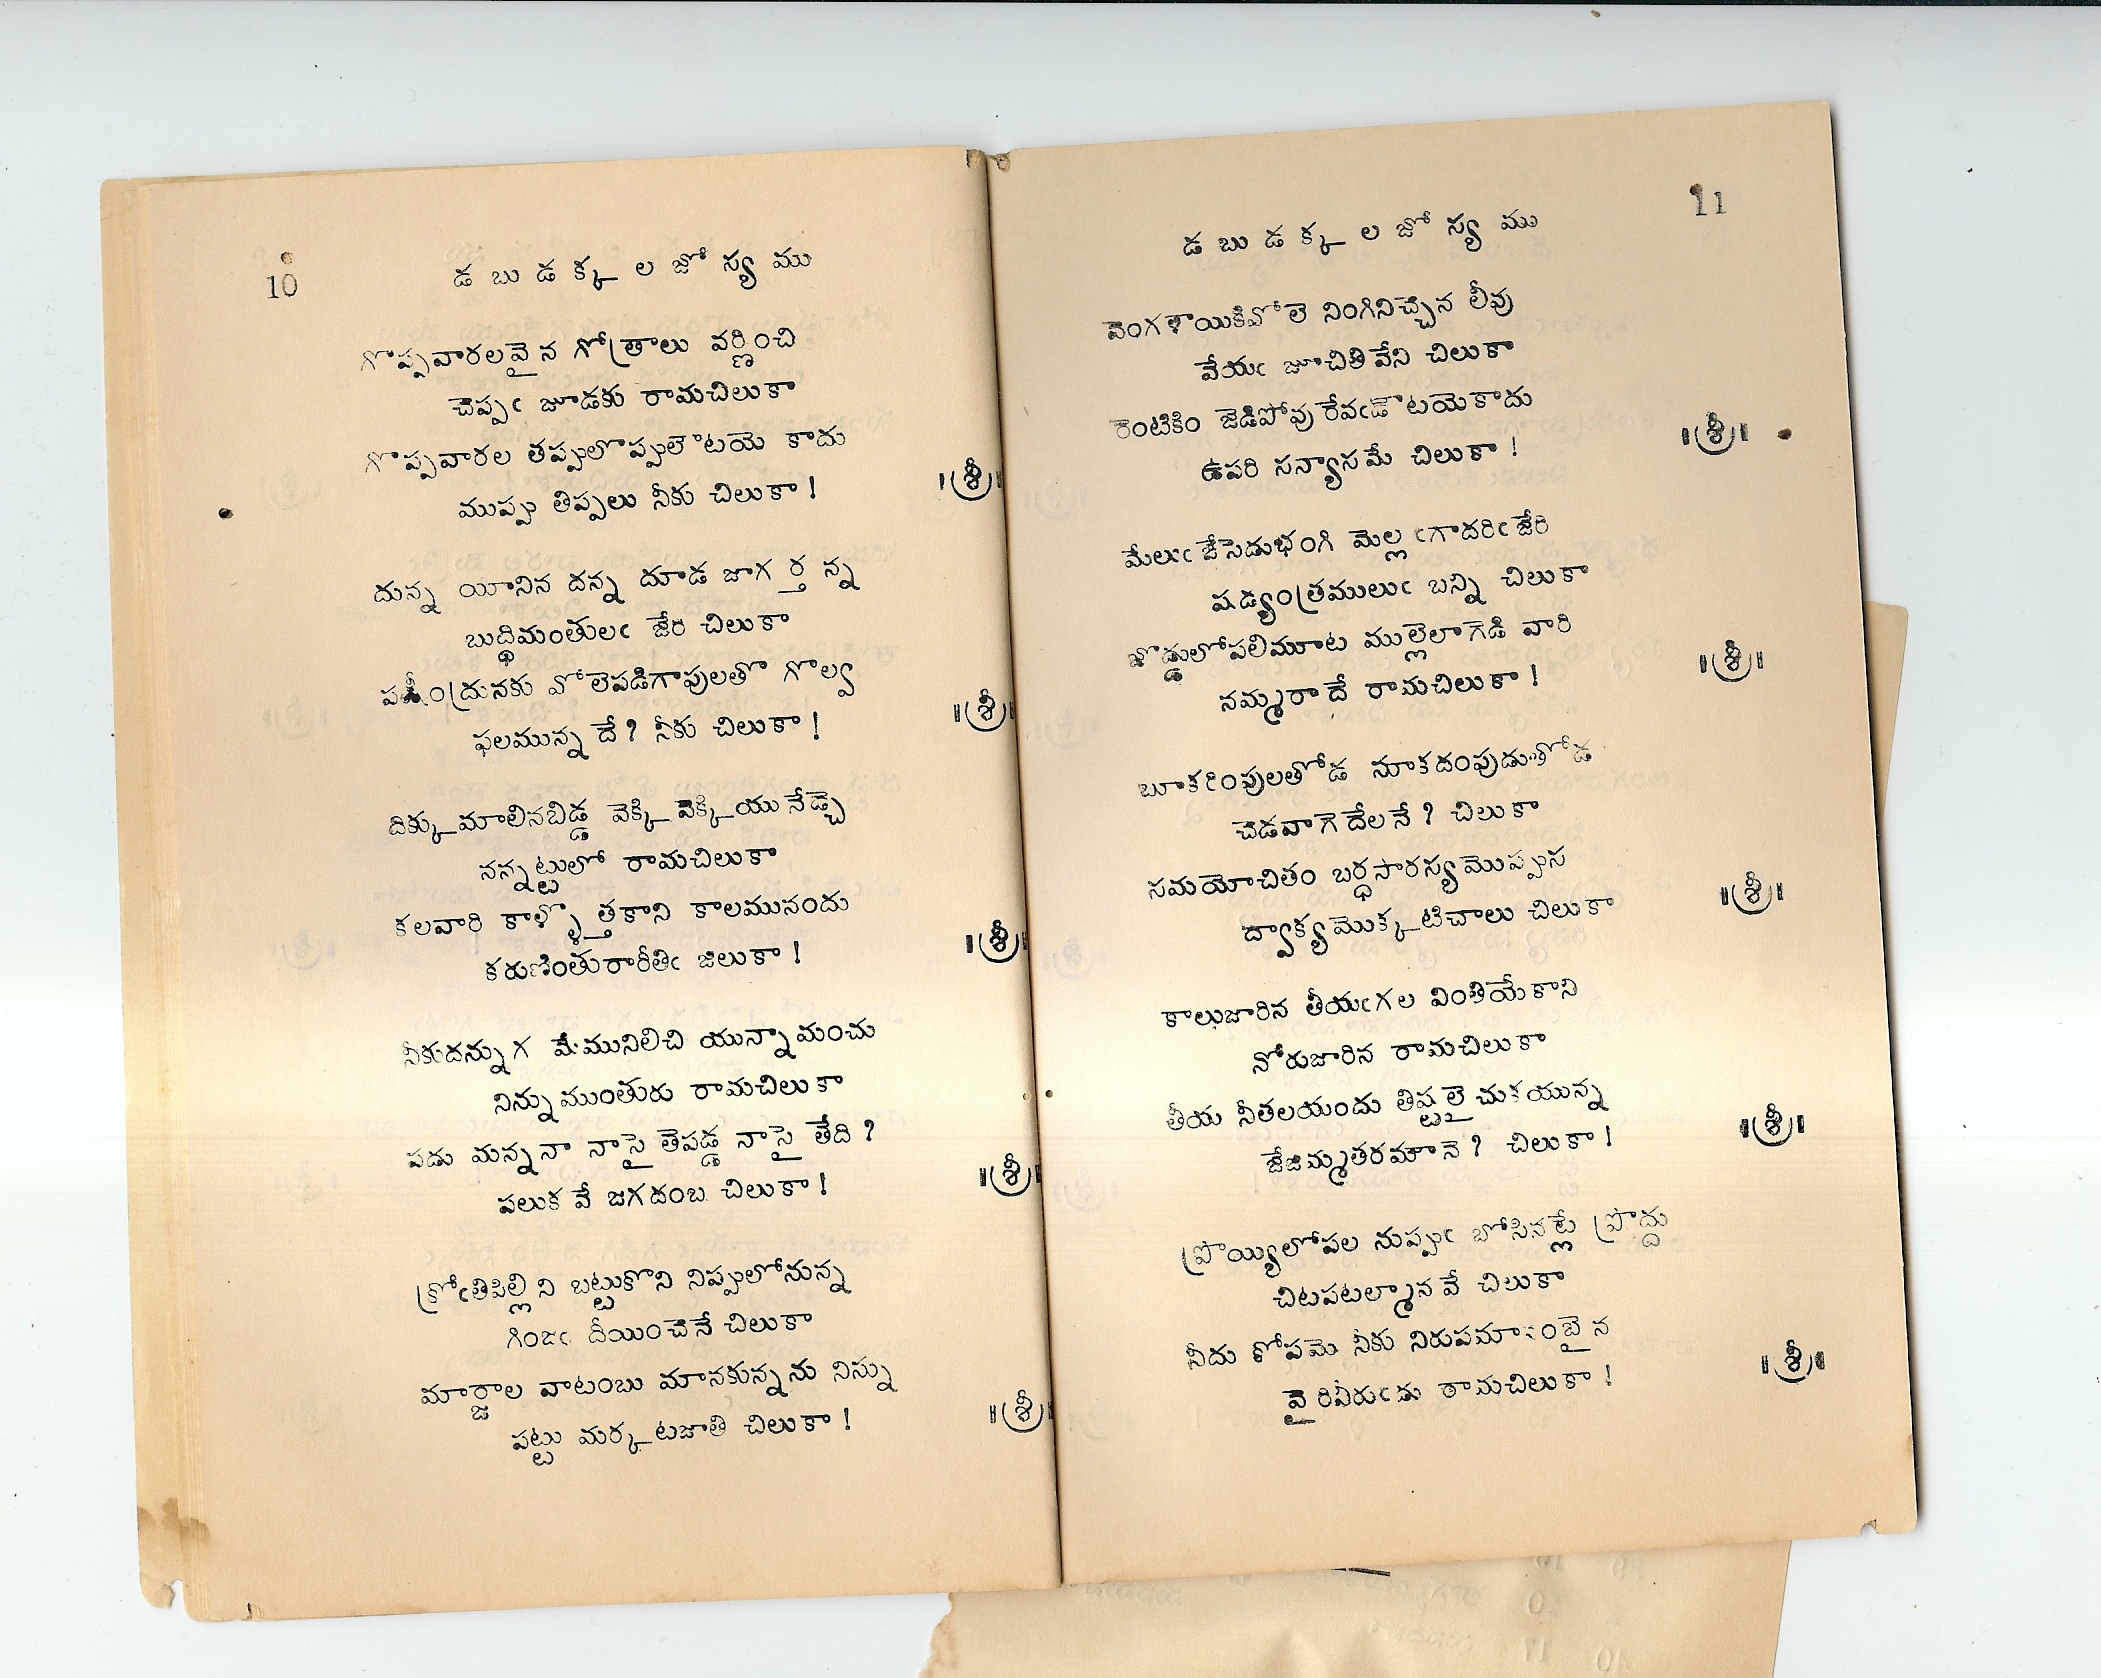 10
డ బు డ క్క ల జో స్య ము
గొప్పవారలవైన గోత్రాలు వర్ణించి
చెప్పఁ జూడకు రామచిలుకా
గొప్పవారల తప్పులొప్పులౌటయె కాదు
ముప్పు తిప్పలు నీకు చిలుకా! ॥శ్రీ॥
దున్న యీనిన దన్న దూడ జాగ ర్త న్న
బుద్ధిమంతులఁ జేరి చిలుకా
పక్షీంద్రునకు వోలెపడిగాపులతొ గొల్వ
ఫలమున్న దే? నీకు చిలుకా! ॥శ్రీ॥
దిక్కుమాలినబిడ్డ వెక్కి వెక్కియు నేడ్చె
నన్నట్టులో రామచిలుకా
కలవారి కాళ్ళొత్తకాని కాలమునందు
కరుణింతురారీతిఁ జిలుకా! ॥శ్రీ॥
నీకుదన్నుగ మేమునిలిచి యున్నామంచు
నిన్నుముంతురు రామచిలుకా
పడు మన్ననా నాసై తెపడ్డ నాసై తేది?
పలుక వే జగదంబ చిలుకా! ॥శ్రీ॥
క్రోఁతిపిల్లిని బట్టుకొని నిప్పులోనున్న
గింజఁ దీయించెనే చిలుకా
మార్జాల వాటంబు మానకున్నను నిన్ను
పట్టు మర్కటజాతి చిలుకా! ॥శ్రీ॥
11
డ బు డ క్క ల జో స్య ము
వెంగళాయికివోలె నింగినిచ్చెన లీవు
వేయఁ జూచితివేని చిలుకా
రెంటికిం జెడిపోవు రేవఁడౌటయెకాదు
ఉపరి సన్యాసమే చిలుకా! ॥శ్రీ॥
మేలుఁ జేసెడుభంగి మెల్లఁగాదరిఁ జేరి
షడ్యంత్రములుఁ బన్ని చిలుకా
బొడ్డులోపలిమూట ముల్లెలాగెడి వారి
నమ్మరాదే రామచిలుకా! ॥శ్రీ॥
బూకరింపులతోడ నూకదంపుడుతోడ
చెడవాగె దేలనే? చిలుకా
సమయోచితం బర్ధసారస్యమొప్పుస
ద్వాక్యమొక్కటిచాలు చిలుకా ॥శ్రీ॥
కాలుజారిన తీయఁగల వింతియేకాని
నోరుజారిన రామచిలుకా
తీయ నీతలయందు తిష్టలై చుకయున్న
జేజమ్మతరమానె? చిలుకా! ॥శ్రీ॥
ప్రొయ్యిలోపల నుప్పుఁ బోసినట్లే ప్రొద్దు
చిటపటల్మాన వే చిలుకా
నీదు కోపమె నీకు నిరుపమానంబైన
వైరివీరుఁడు రామచిలుకా! ॥శ్రీ॥